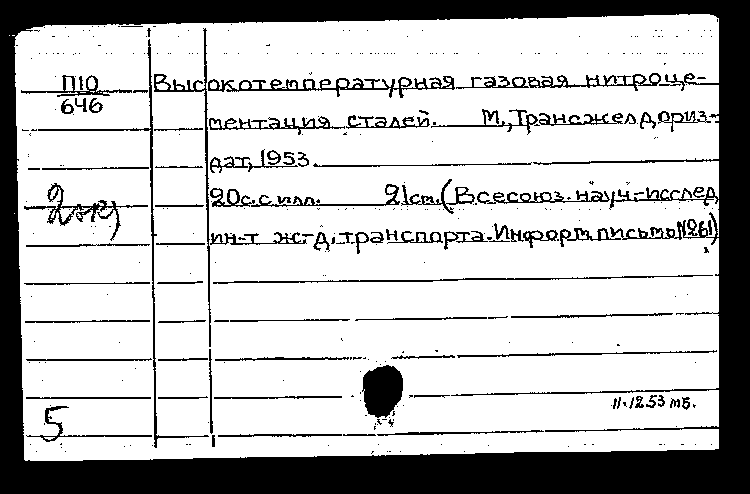 П10
646
Высокотемпературная газовая нитроце-
ментация сталей. М., Трансжелдориз-
дат, 1953.
20с. с илл. 21см. (Всесоюз. науч-исслед.
ин-т ж-д. транспорта. Информ. письмо №261)
2 экз
11.12.53 тб.
5